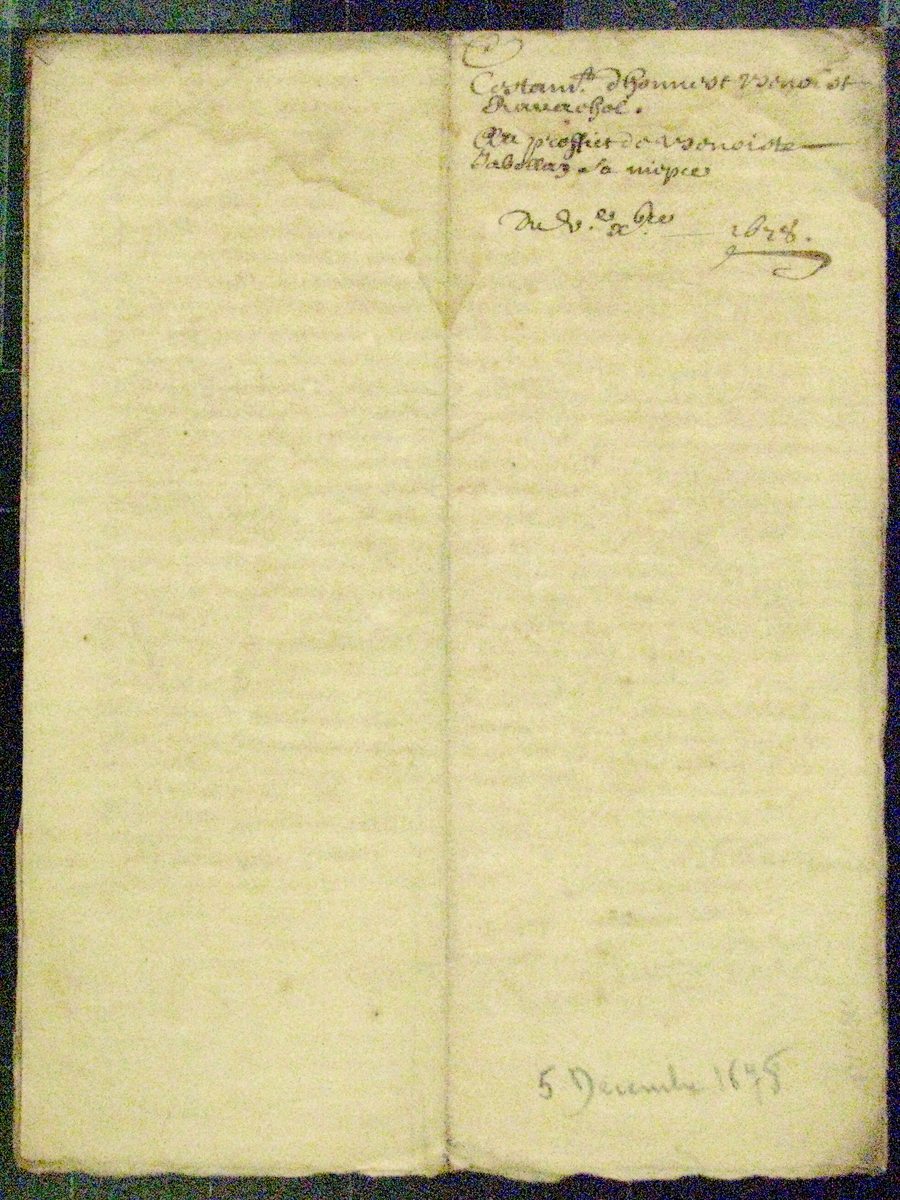 Testam.t d'honnest Benoist
Ravachol.
Au proffict de Benoiste
sa niepce
Du v.e xbre 1678.
5 Decembre 1678